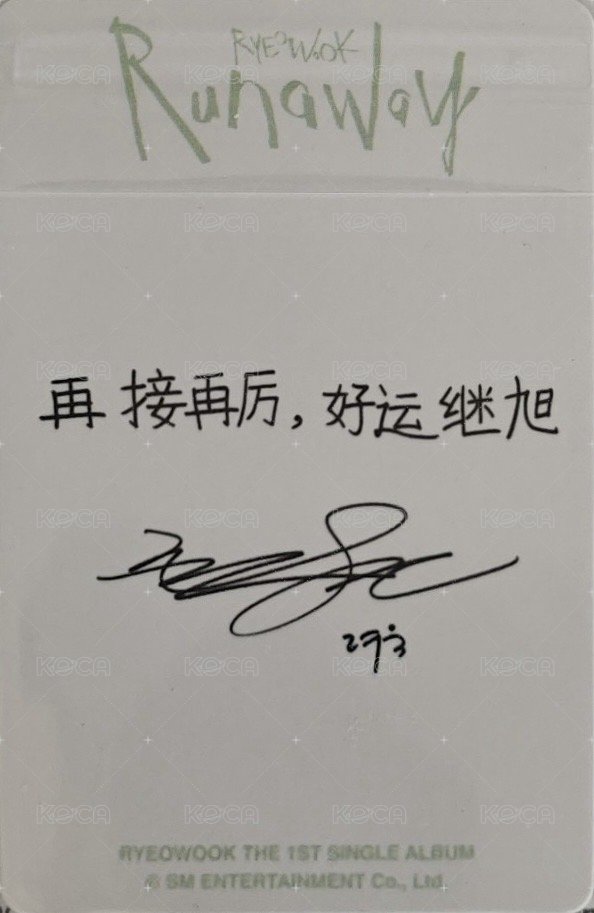 RYEOWOOK
Runaway
再接再厉，好运继旭
려욱
RYEOWOOK THE 1ST SINGLE ALBUM
© SM ENTERTAINMENT Co., Ltd.
KOCA